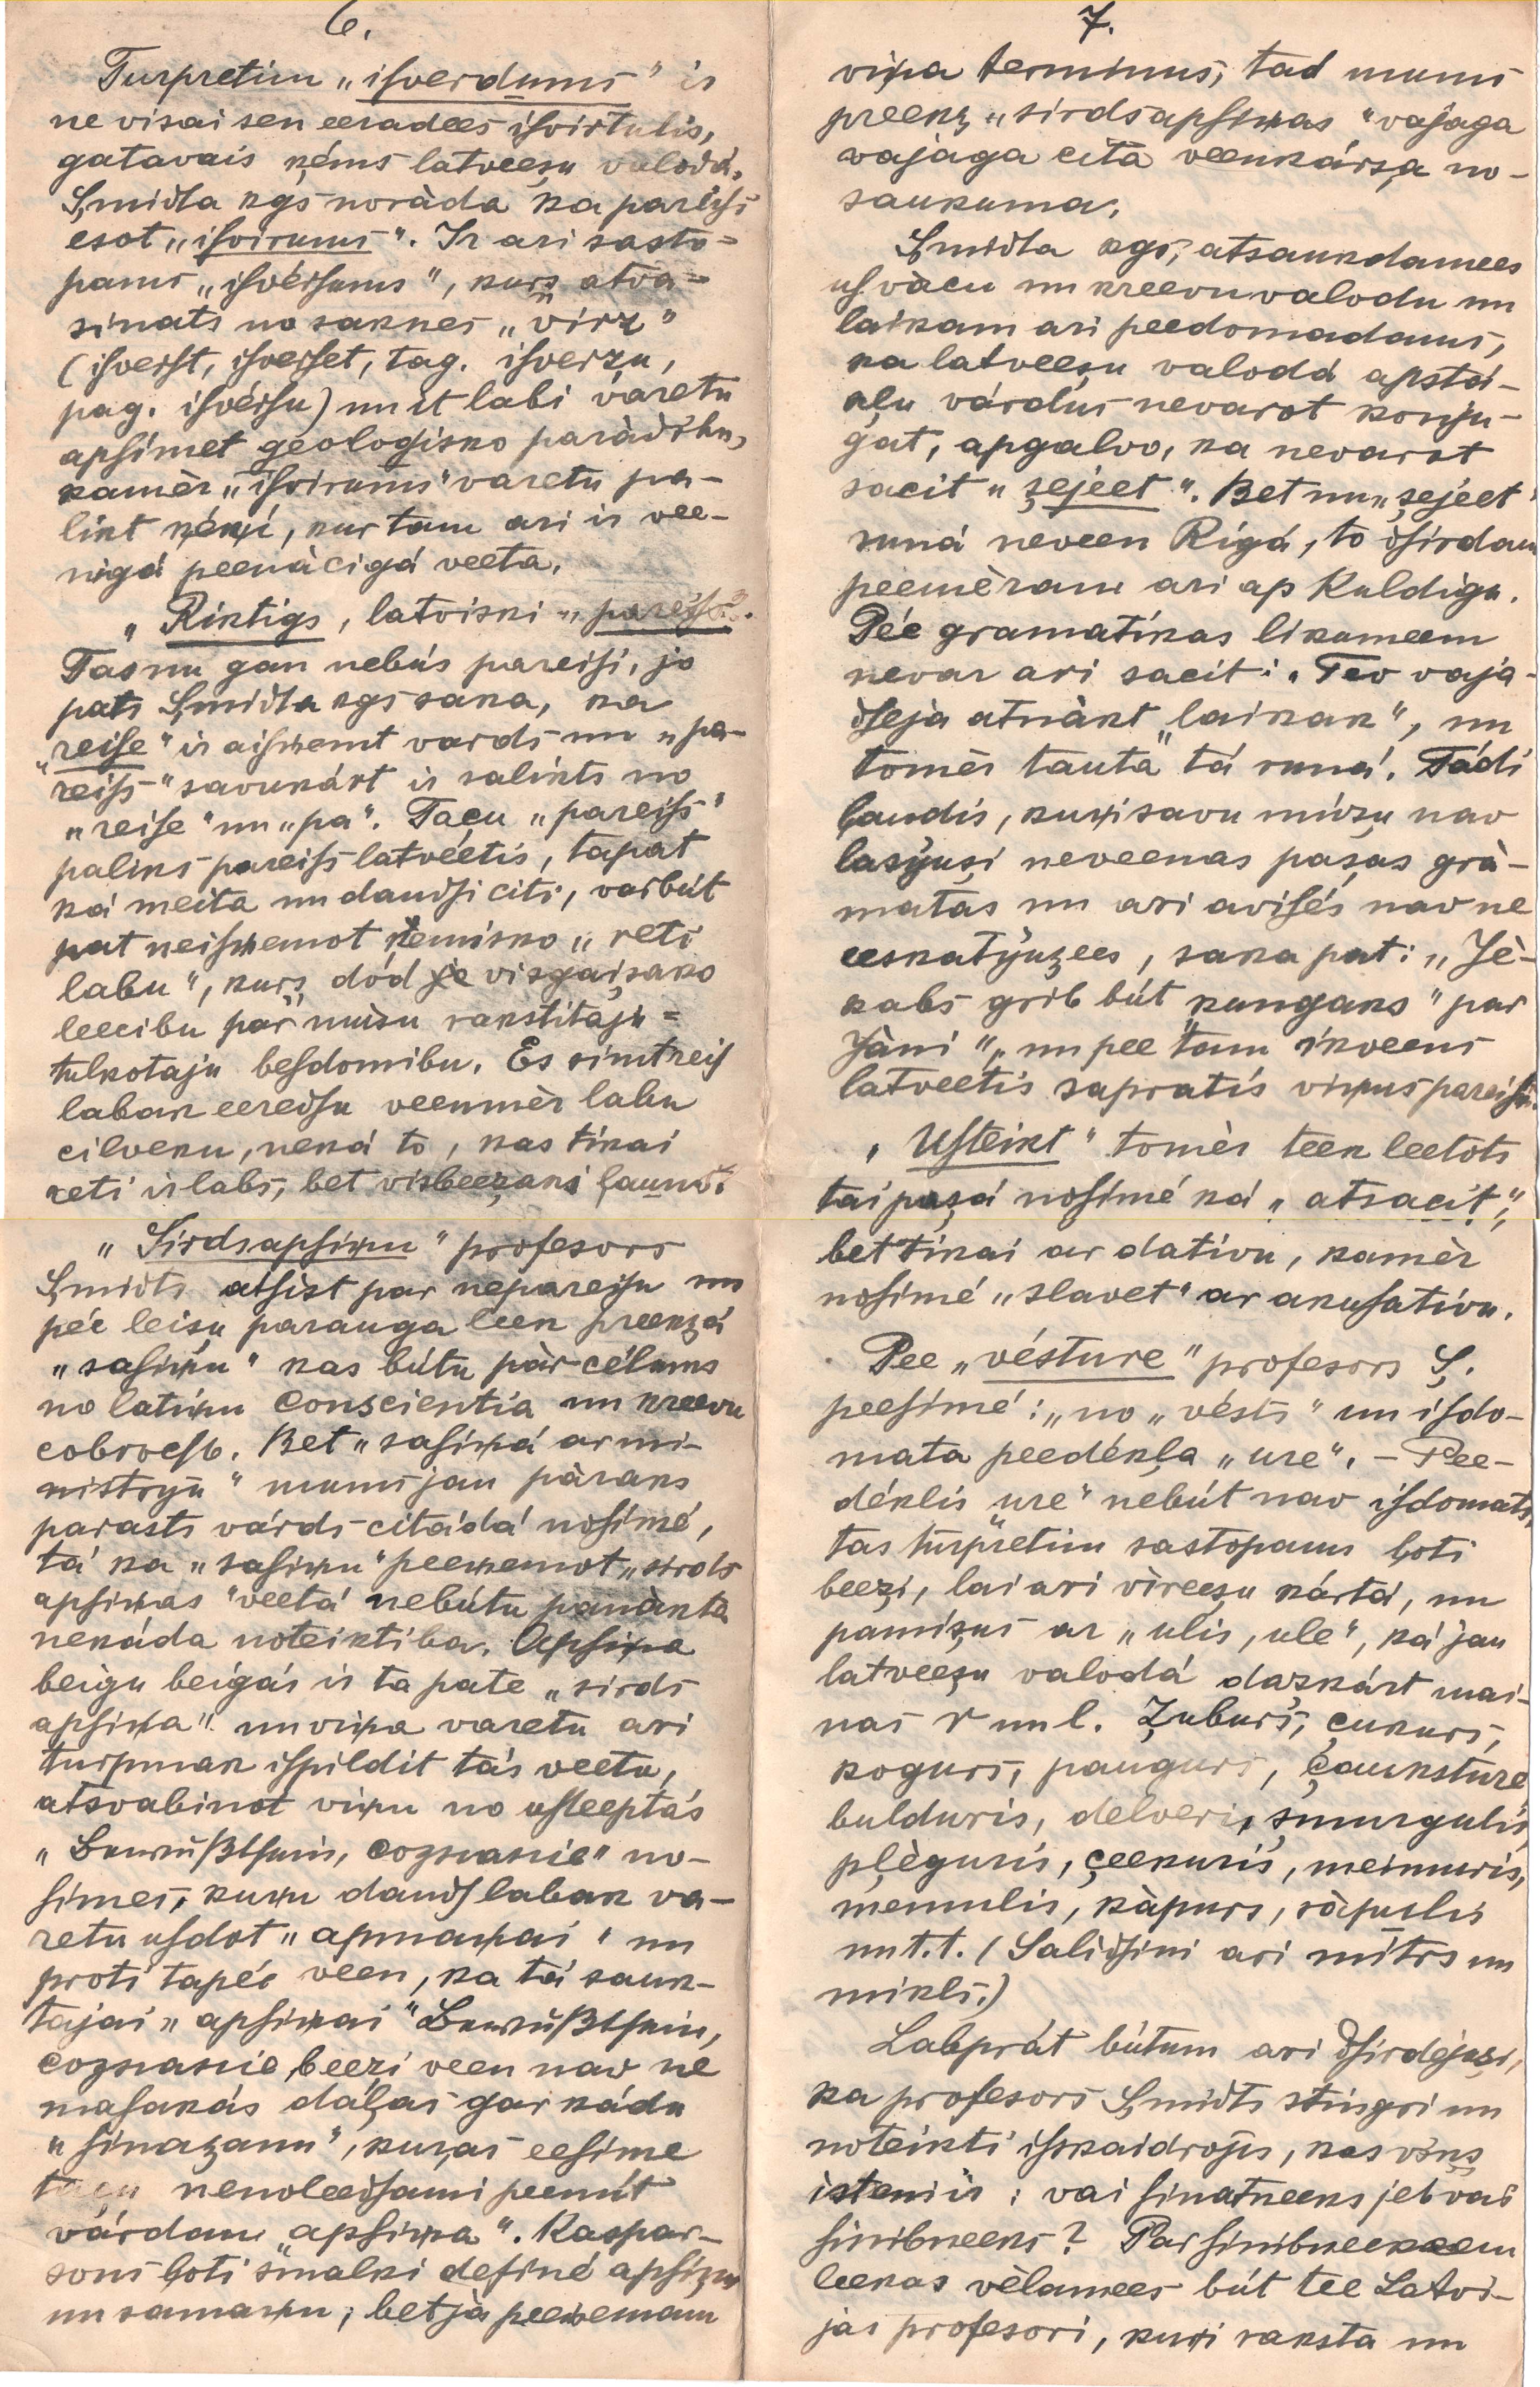 6.
Turpretim „isverdums" ir
ne visai sen eeradees isvirtulis,
gatavais ķéms latveeşu valodá.
Şmidta kgs noràda ka pareisi
esot „isvirums". Ir ari sasto=
pams „isvérsums", kurş atva=
sinats no saknes „virz"
(isverst, isverset, tag. isverzu,
pag. isvérsu) un it labi varetu
apsimet geologisko paràdibu,
kamèr „isvirums" varetu pa-
likt ķéķí, kur tam ari ir vee-
nigá peenàcigá veeta.
„Riktigs, latviski „pareiss".
Tas nu gan nebús pareisi, jo
pats Şmidta kgs saka, ka
„reise" ir aisņemt vards un „pa-
reiss" savukárt ir salikts no
„reise" un „pa". Taçu „pareiss"
paliks pareiss latvéetis, tapat
ká meita un daudsi citi, varbút
pat neisņemot ķemisko „reti
labu", kurş dód je visgaişako
leecibu par mùsu rakstitaju=
tulkotaju besdomibu. Es simtreis
labak eeredsu veenmèr labu
cilveku, neká to, kas tikai
reti ir labs, bet visbeeẓaki ļauns.
„Sirdsapsiņu" profesors
Şmidts atsist par nepareisu un
péc leişu parauga leek preekşá
„sasiņu" kas bútu pàr-célums
no latiņu conscientia un kreevu
совѣсть. Bet „sasiņá ar mi-
nistryu" mums jau pàraks
parasts várds citádá nosímé,
tá ka „sasiņu" peeņemot „sirds
apsiņas" veetá nebútu panàkta
nekáda noteiktiba. Apsiņa
beigu beigás ir ta pate „sirds
apsiņa" un viņa varetu ari
turpmak ispildit tás veetu,
atsvabinot viņu no usteeptás
„Bewußtsein, сознание" no-
simes, kuŗu dauds labak va-
retu usdot „apmaņai" un
proti tapéc veen, ka tá sauk-
tajai „apsiņai" Bewußtsein,
сознание, beeẓi veen nav ne
masakás dáļas gar kádu
„sinaşanu", kuŗas eesime
taçu nenoleedsami peemít
várdam „apsiņa". Kaspar-
sons ļoti smalki definé apsiņu
un samaņu; bet jà peeņemam
7.
viņa terminus, tad mums
preekş „sirdsapsiņas" vajaga
vajaga cita veenkárşa no-
saukuma.
Şmidta kgs, atsaukdamees
us vàcu un kreevu valodu un
laikam ari peedomadams,
ka latveeşu valodá apstá-
kļu várdus nevarot konju-
gat, apgalvo, ka nevarot
sacit „şejeet". Bet nu „şejeet"
runá neveen Rigá, to dsirdam
peemèram ari ap Kuldigu.
Péc gramatikas likumeem
nevar ari sacit: „Tev vaja-
dseja atnàkt „laikak", un
tomèr tautá tá runá. Tádi
ļaudis, kuŗi savu múẓu nav
lasyuşi neveenas paşas grà-
matas un ari avisés nav ne
eeskatyuşees, saka pat: „Jè-
kabs grib bút kungaks" par
Jàni", un pee tam ikveens
latveetis sapratís viņus pareisi.
„Usteikt" tomèr teek leetots
tai paşá nosimé ká „atsacit",
bet tikai ar dativu, kamèr
nosimé „slavet" ar akusativu.
Pee „vésture" profesors Ş.
peesimé: „no „vésts" un isdo-
mata peedékļa „ure". – Pee-
déklis „ure" nebút nav isdomats,
tas turpretim sastopams ļoti
beeẓi, lai ari vireeşu kártá, un
pamişus ar „ulis, ule", ká jau
latveeşu valodá daẓkárt mai-
nas r un l. Ẓuburs, çukurs,
kogurs, paugurs, çauksture,
bulduris, delveris, şmurgulis,
pļèguris, çeekuris, meimuris,
memulis, kàpurs, ràpulis
un t.t. (Salidsini ari mitrs un
mikls.)
Labprát bútum ari dsirdéjuşi,
ka profesors Şmidts stingri un
noteikti isskaidrojis, kas viņş
isteni ir: vai sinatneeks jeb vai
sinibneeks? Par sinibneekeem
leekas vèlamees bút tee Latvi-
jas profesori, kuŗi raksta un